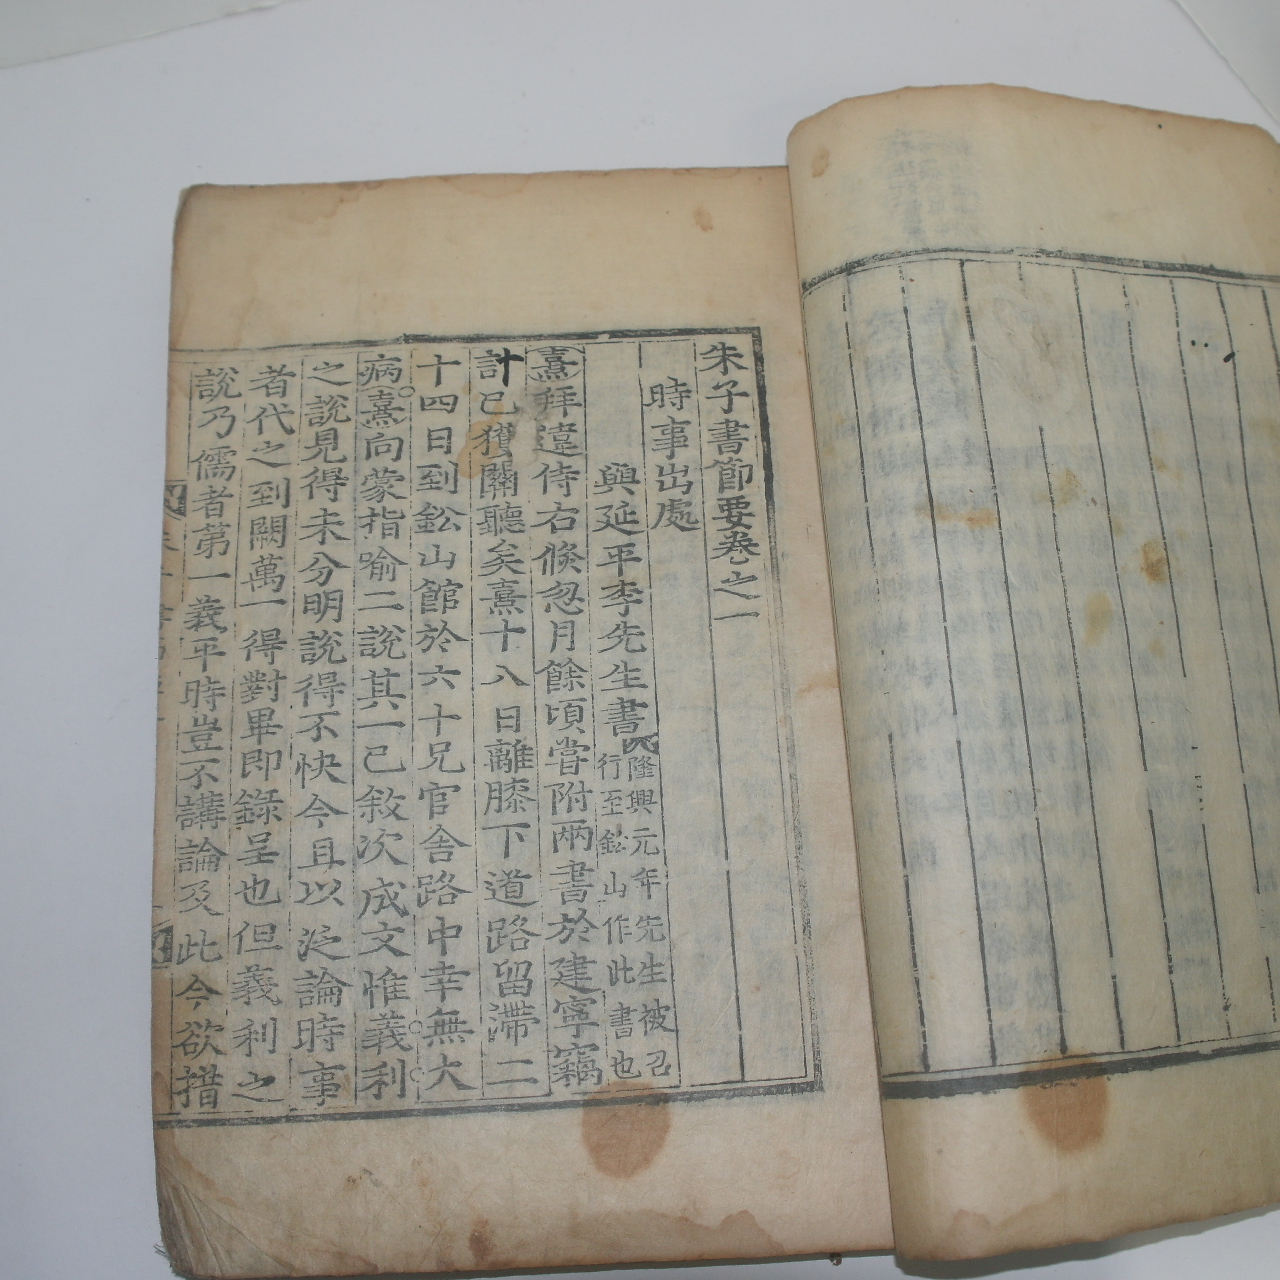 朱子書節要卷之一
時事出處
與延平李先生書
隆興元年先生被召
行至鉛山作此書也
熹拜違侍右倏忽月餘頃嘗附兩書於建寧竊
計已獲關聽矣熹十八日離膝下道路留滯二
十四日到鉛山館於六十兄官舍路中幸無大
病熹向蒙指喻二說其一已敘次成文惟義利
之說見得未分明說得不快今且以泛論時事
者代之到闕萬一得對畢即錄呈也但義利之
說乃儒者第一義平時豈不講論及此今欲措